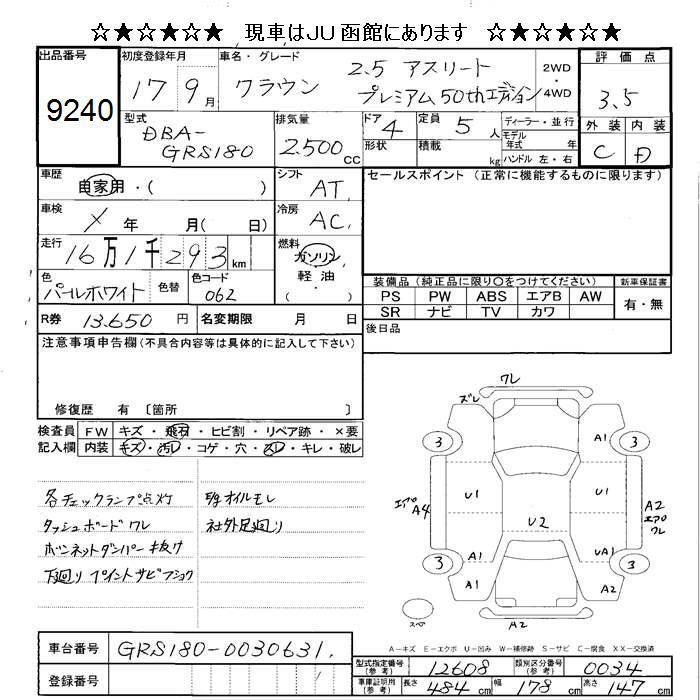 ☆★☆★☆★ 現車はＪＵ函館にあります ☆★☆★☆★
出品番号 9240
初度登録年月 17 9月
車名・グレード クラウン 2.5 アスリート プレミアム50thエディション
2WD・4WD
評価点 3.5
外装 C 内装 D
型式 DBA-GRS180
排気量 2.500cc
ドア 4
形状
定員 5人
積載 kg
ディーラー・並行
モデル年式 年式
ハンドル 左・右
車歴 自家用・( )
シフト AT.
セールスポイント (正常に機能するものに限ります)
車検 X 年 月( 日)
冷房 AC.
走行 16万1千293km
燃料 ガソリン 軽油 ( )
色 パールホワイト 色替
色コード 062
装備品 (純正品に限り○をつけてください)
PS PW ABS エアB AW
SR ナビ TV カワ
新車保証書 有・無
R券 13.650円
名変期限 月 日
後日品
注意事項申告欄(不具合内容等は具体的に記入して下さい)
修復歴 有 〔箇所 〕
検査員記入欄
FW キズ・飛石・ヒビ割・リペア跡・×要
内装 キズ・汚レ・コゲ・穴・スレ・キレ・破レ
各チェックランプ点灯
ダッシュボードワレ
ボンネットダンパー抜け
下廻りプイントサビフショク
E/gオイルモレ
社外足廻り
ワレ
ズレ
3 A1 3
エアロ A4 U1 U1 A2 エアロ ワレ
U2
3 A1 UA1 3
A1 A2
スペア A2
A-キズ E-エクボ U-凹み W-補修跡 S-サビ C-腐食 XX-交換済
車台番号 GRS180-0030631.
登録番号
型式指定番号(参考) 12608 類別区分番号(参考) 0034
車庫証明用(参考) 長さ 484cm 幅 178cm 高さ 147cm